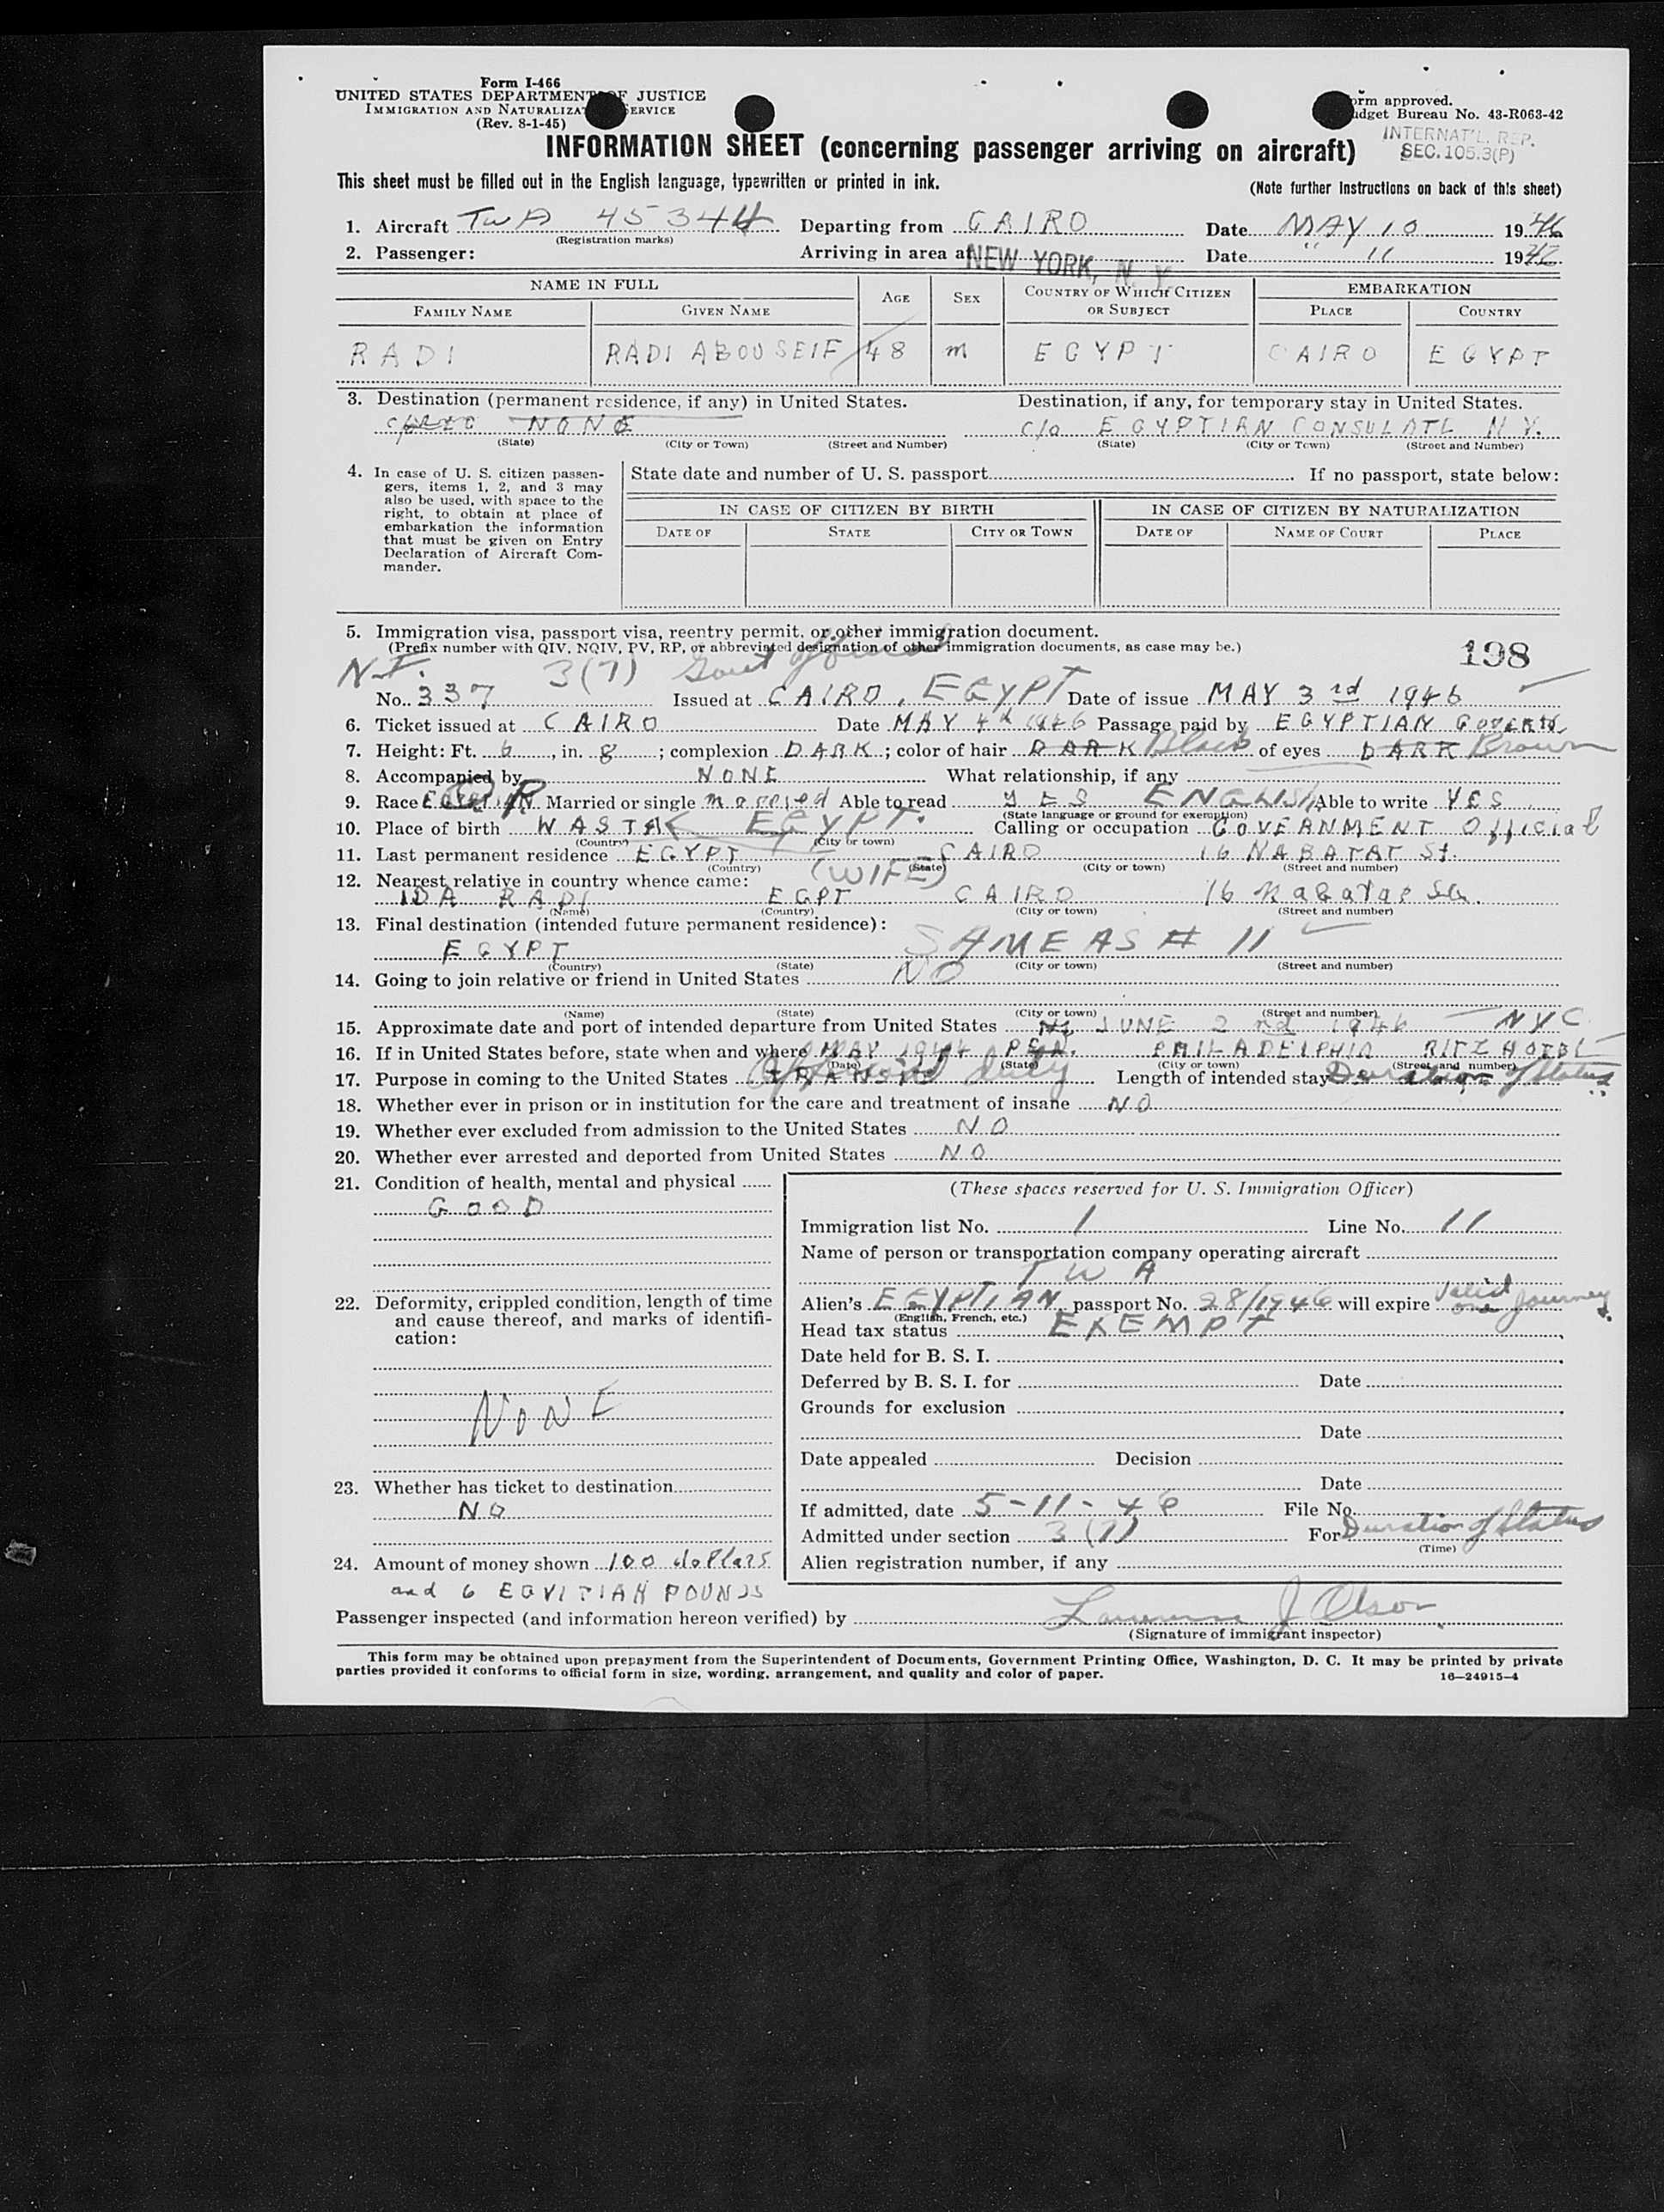 Form I-466
UNITED STATES DEPARTMENT OF JUSTICE
IMMIGRATION AND NATURALIZATION SERVICE
(Rev. 8-1-45)
Form approved.
Budget Bureau No. 43-R063-42
INTERNAT'L. REP.
SEC. 105.3(P)
INFORMATION SHEET (concerning passenger arriving on aircraft)
This sheet must be filled out in the English language, typewritten or printed in ink.
(Note further instructions on back of this sheet)
1. Aircraft TWA 45344 Departing from CAIRO Date MAY 10 1946
(Registration marks)
2. Passenger: Arriving in area at NEW YORK, N. Y. Date " 11 19
NAME IN FULL AGE SEX COUNTRY OF WHICH CITIZEN OR SUBJECT EMBARKATION
FAMILY NAME GIVEN NAME PLACE COUNTRY
RADI RADI ABOUSEIF 48 M EGYPT CAIRO EGYPT
3. Destination (permanent residence, if any) in United States. Destination, if any, for temporary stay in United States.
NONE c/o EGYPTIAN CONSULATE N.Y.
(State) (City or Town) (Street and Number) (State) (City or Town) (Street and Number)
4. In case of U. S. citizen passengers, items 1, 2, and 3 may also be used, with space to the right, to obtain at place of embarkation the information that must be given on Entry Declaration of Aircraft Commander.
State date and number of U. S. passport If no passport, state below:
IN CASE OF CITIZEN BY BIRTH IN CASE OF CITIZEN BY NATURALIZATION
DATE OF STATE CITY OR TOWN DATE OF NAME OF COURT PLACE
5. Immigration visa, passport visa, reentry permit, or other immigration document.
(Prefix number with QIV, NQIV, PV, RP, or abbreviated designation of other immigration documents, as case may be.)
198
N.I. 3(7) Govt official
No. 337 Issued at CAIRO, EGYPT Date of issue MAY 3rd 1946
6. Ticket issued at CAIRO Date MAY 4th 1946 Passage paid by EGYPTIAN GOVERN.
7. Height: Ft. 6, in. 8; complexion DARK; color of hair DARK Black of eyes DARK Brown
8. Accompanied by NONE What relationship, if any
9. Race Married or single married Able to read YES ENGLISH Able to write YES
(State language or ground for exemption)
10. Place of birth WASTA EGYPT. Calling or occupation GOVERNMENT Official
(Country) (City or town)
11. Last permanent residence EGYPT CAIRO 16 NABATAT St.
(Country) (State) (City or town) (Street and number)
12. Nearest relative in country whence came: (WIFE)
IDA RADI EGPT CAIRO 16 Nabatat
(Name) (Country) (City or town) (Street and number)
13. Final destination (intended future permanent residence):
EGYPT SAME AS # 11
(Country) (State) (City or town) (Street and number)
14. Going to join relative or friend in United States NO
(Name) (State) (City or town) (Street and number)
15. Approximate date and port of intended departure from United States JUNE 2nd 1946 — NYC
16. If in United States before, state when and where MAY 1944 PEN. PHILADELPHIA RITZ HOTEL
(Date) (State) (City or town) (Street and number)
17. Purpose in coming to the United States Official duty Length of intended stay Duration of Status
18. Whether ever in prison or in institution for the care and treatment of insane NO
19. Whether ever excluded from admission to the United States NO
20. Whether ever arrested and deported from United States NO
21. Condition of health, mental and physical
GOOD
22. Deformity, crippled condition, length of time and cause thereof, and marks of identification:
NONE
23. Whether has ticket to destination
NO
24. Amount of money shown 100 dollars
and 6 EGYITIAN POUNDS
(These spaces reserved for U. S. Immigration Officer)
Immigration list No. 1 Line No. 11
Name of person or transportation company operating aircraft
TWA
Alien's EGYPTIAN passport No. 28/1946 will expire Valid one journey.
(English, French, etc.)
Head tax status EXEMPT
Date held for B. S. I.
Deferred by B. S. I. for Date
Grounds for exclusion
Date
Date appealed Decision
Date
If admitted, date 5-11-46 File No.
Admitted under section 3(7) For Duration of Status
(Time)
Alien registration number, if any
Passenger inspected (and information hereon verified) by J Olson
(Signature of immigrant inspector)
This form may be obtained upon prepayment from the Superintendent of Documents, Government Printing Office, Washington, D. C. It may be printed by private
parties provided it conforms to official form in size, wording, arrangement, and quality and color of paper.
16—24915-4